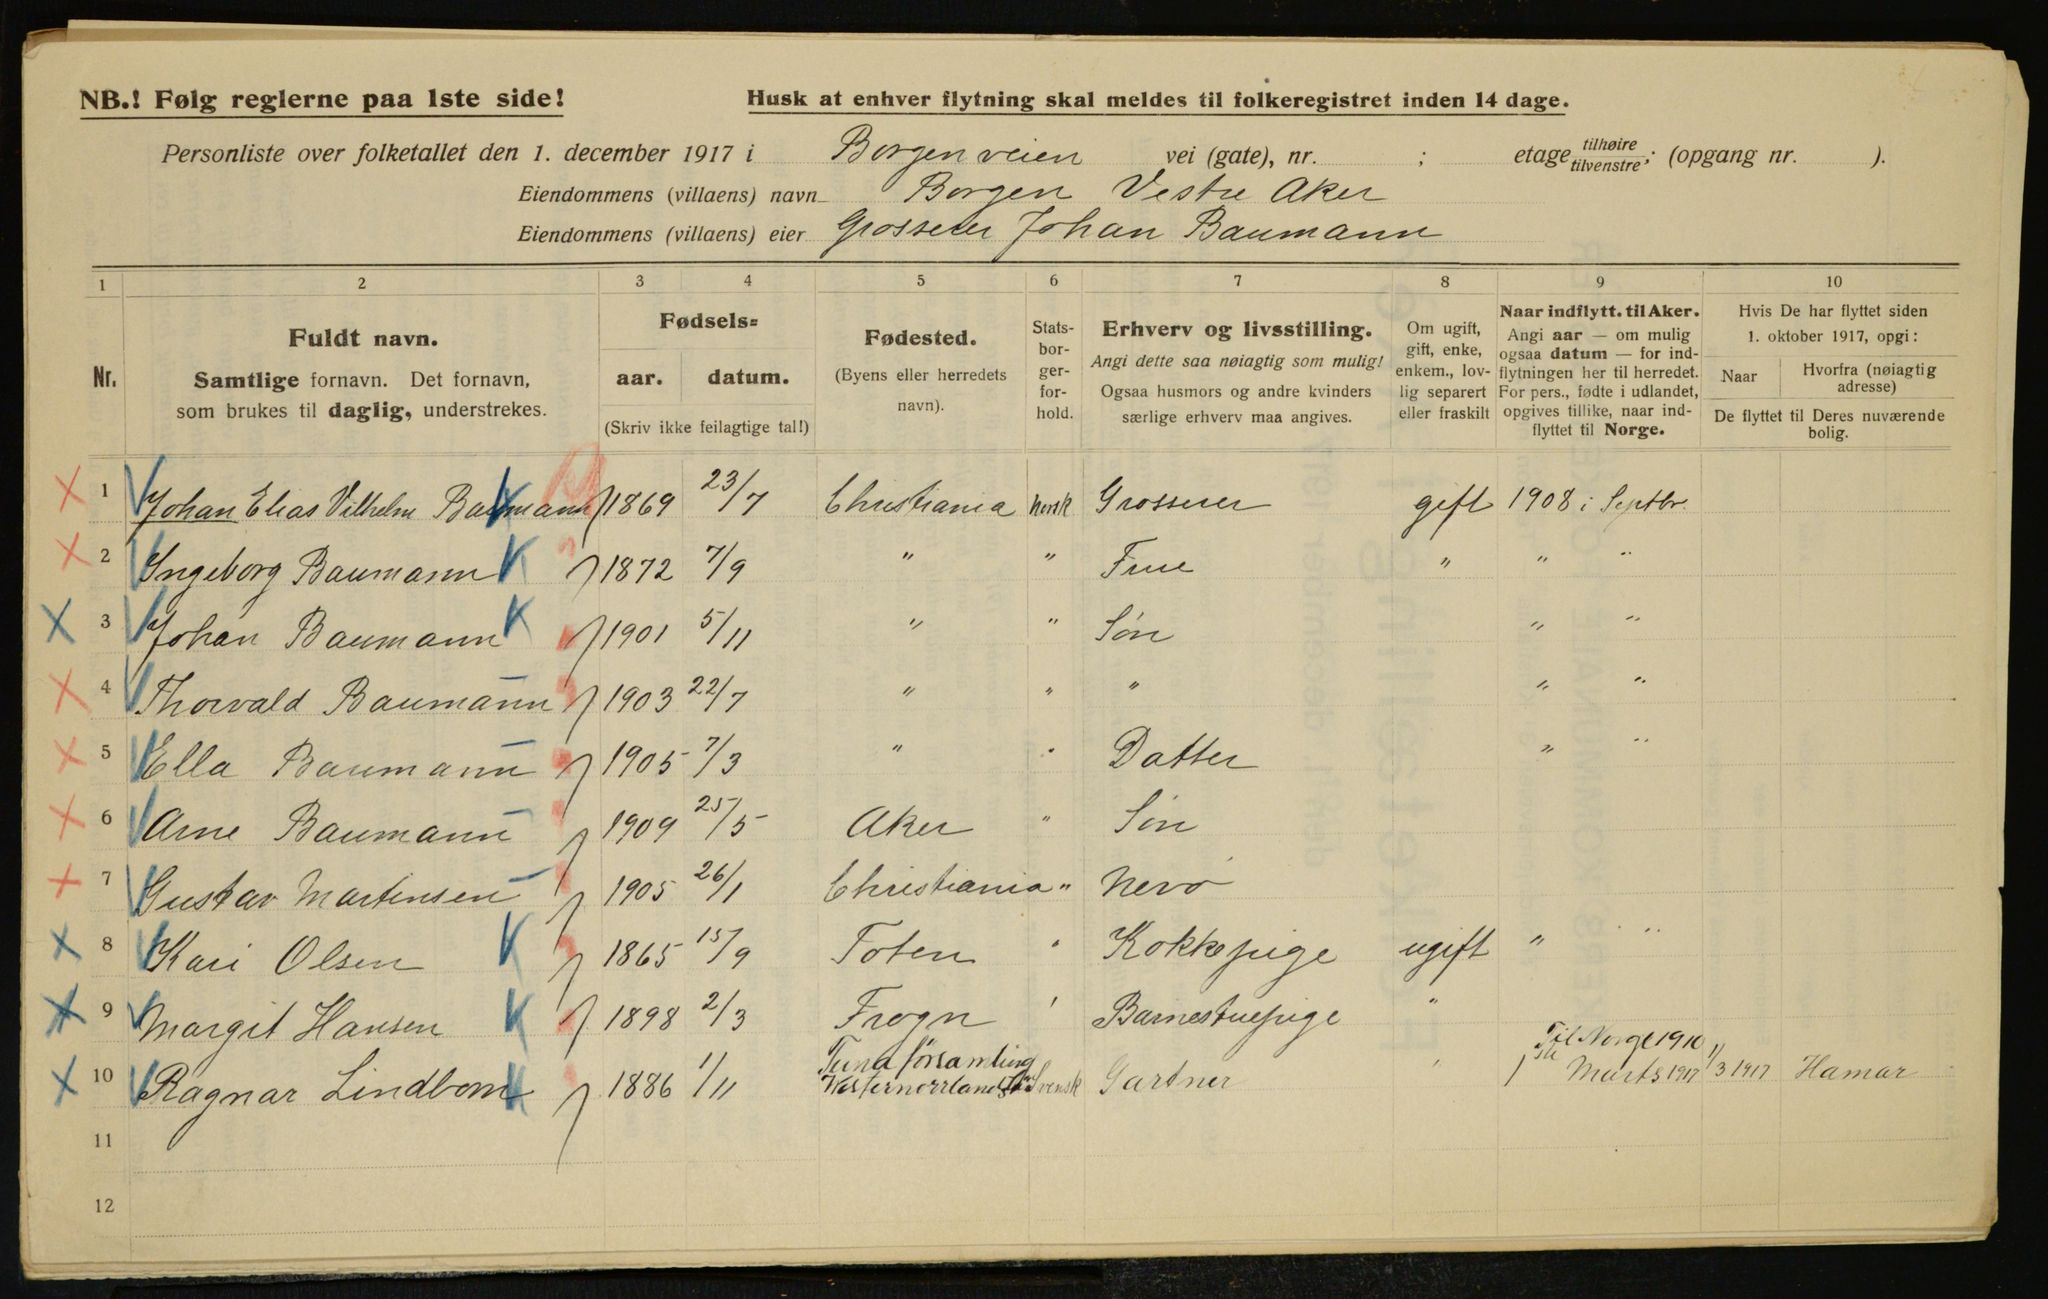 NB.! Følg reglerne paa 1ste side!
Husk at enhver flytning skal meldes til folkeregistret inden 14 dage.
Personliste over folketallet den 1. december 1917 i Borgenveien vei (gate), nr. ; etage tilhøire tilvenstre; (opgang nr. ).
Eiendommens (villaens) navn Borgen Vestre Aker
Eiendommens (villaens) eier Grosserer Johan Baumann
1 2 3 4 5 6 7 8 9 10
Nr.
Fuldt navn.
Samtlige fornavn. Det fornavn,
som brukes til daglig, understrekes.
Fødsels=
aar. datum.
(Skriv ikke feilagtige tal!)
Fødested.
(Byens eller herredets
navn).
Stats-
bor-
ger-
for-
hold.
Erhverv og livsstilling.
Angi dette saa nøiagtig som mulig!
Ogsaa husmors og andre kvinders
særlige erhverv maa angives.
Om ugift,
gift, enke,
enkem., lov-
lig separert
eller fraskilt
Naar indflytt. til Aker.
Angi aar — om mulig
ogsaa datum — for ind-
flytningen her til herredet.
For pers., fødte i udlandet,
opgives tillike, naar ind-
flyttet til Norge.
Hvis De har flyttet siden
1. oktober 1917, opgi:
Naar
Hvorfra (nøiagtig
adresse)
De flyttet til Deres nuværende
bolig.
1 Johan Elias Vilhelm Baumann 1869 23/7 Christiania norsk Grosserer gift 1908 i Septbr.
2 Ingeborg Baumann K 1872 7/9 " " Frue " " "
3 Johan Baumann K 1901 5/11 " " Søn " "
4 Thorvald Baumann 1903 22/7 " " " " "
5 Ella Baumann 1905 7/3 " " Datter " "
6 Arne Baumann 1909 25/5 Aker " Søn
7 Gustav Martinsen 1905 26/1 Christiania " Nevø
8 Kari Olsen K 1865 15/9 Toten " Kokkepige ugift " "
9 Margit Hansen K 1898 2/3 Frogn " Barnestuepige "
Tuna församling Til Norge 1910
10 Ragnar Lindbom K 1886 1/11 Westernorrlands Svensk Gartner " 1ste Marts 1917 1/3 1917 Hamar
11
12